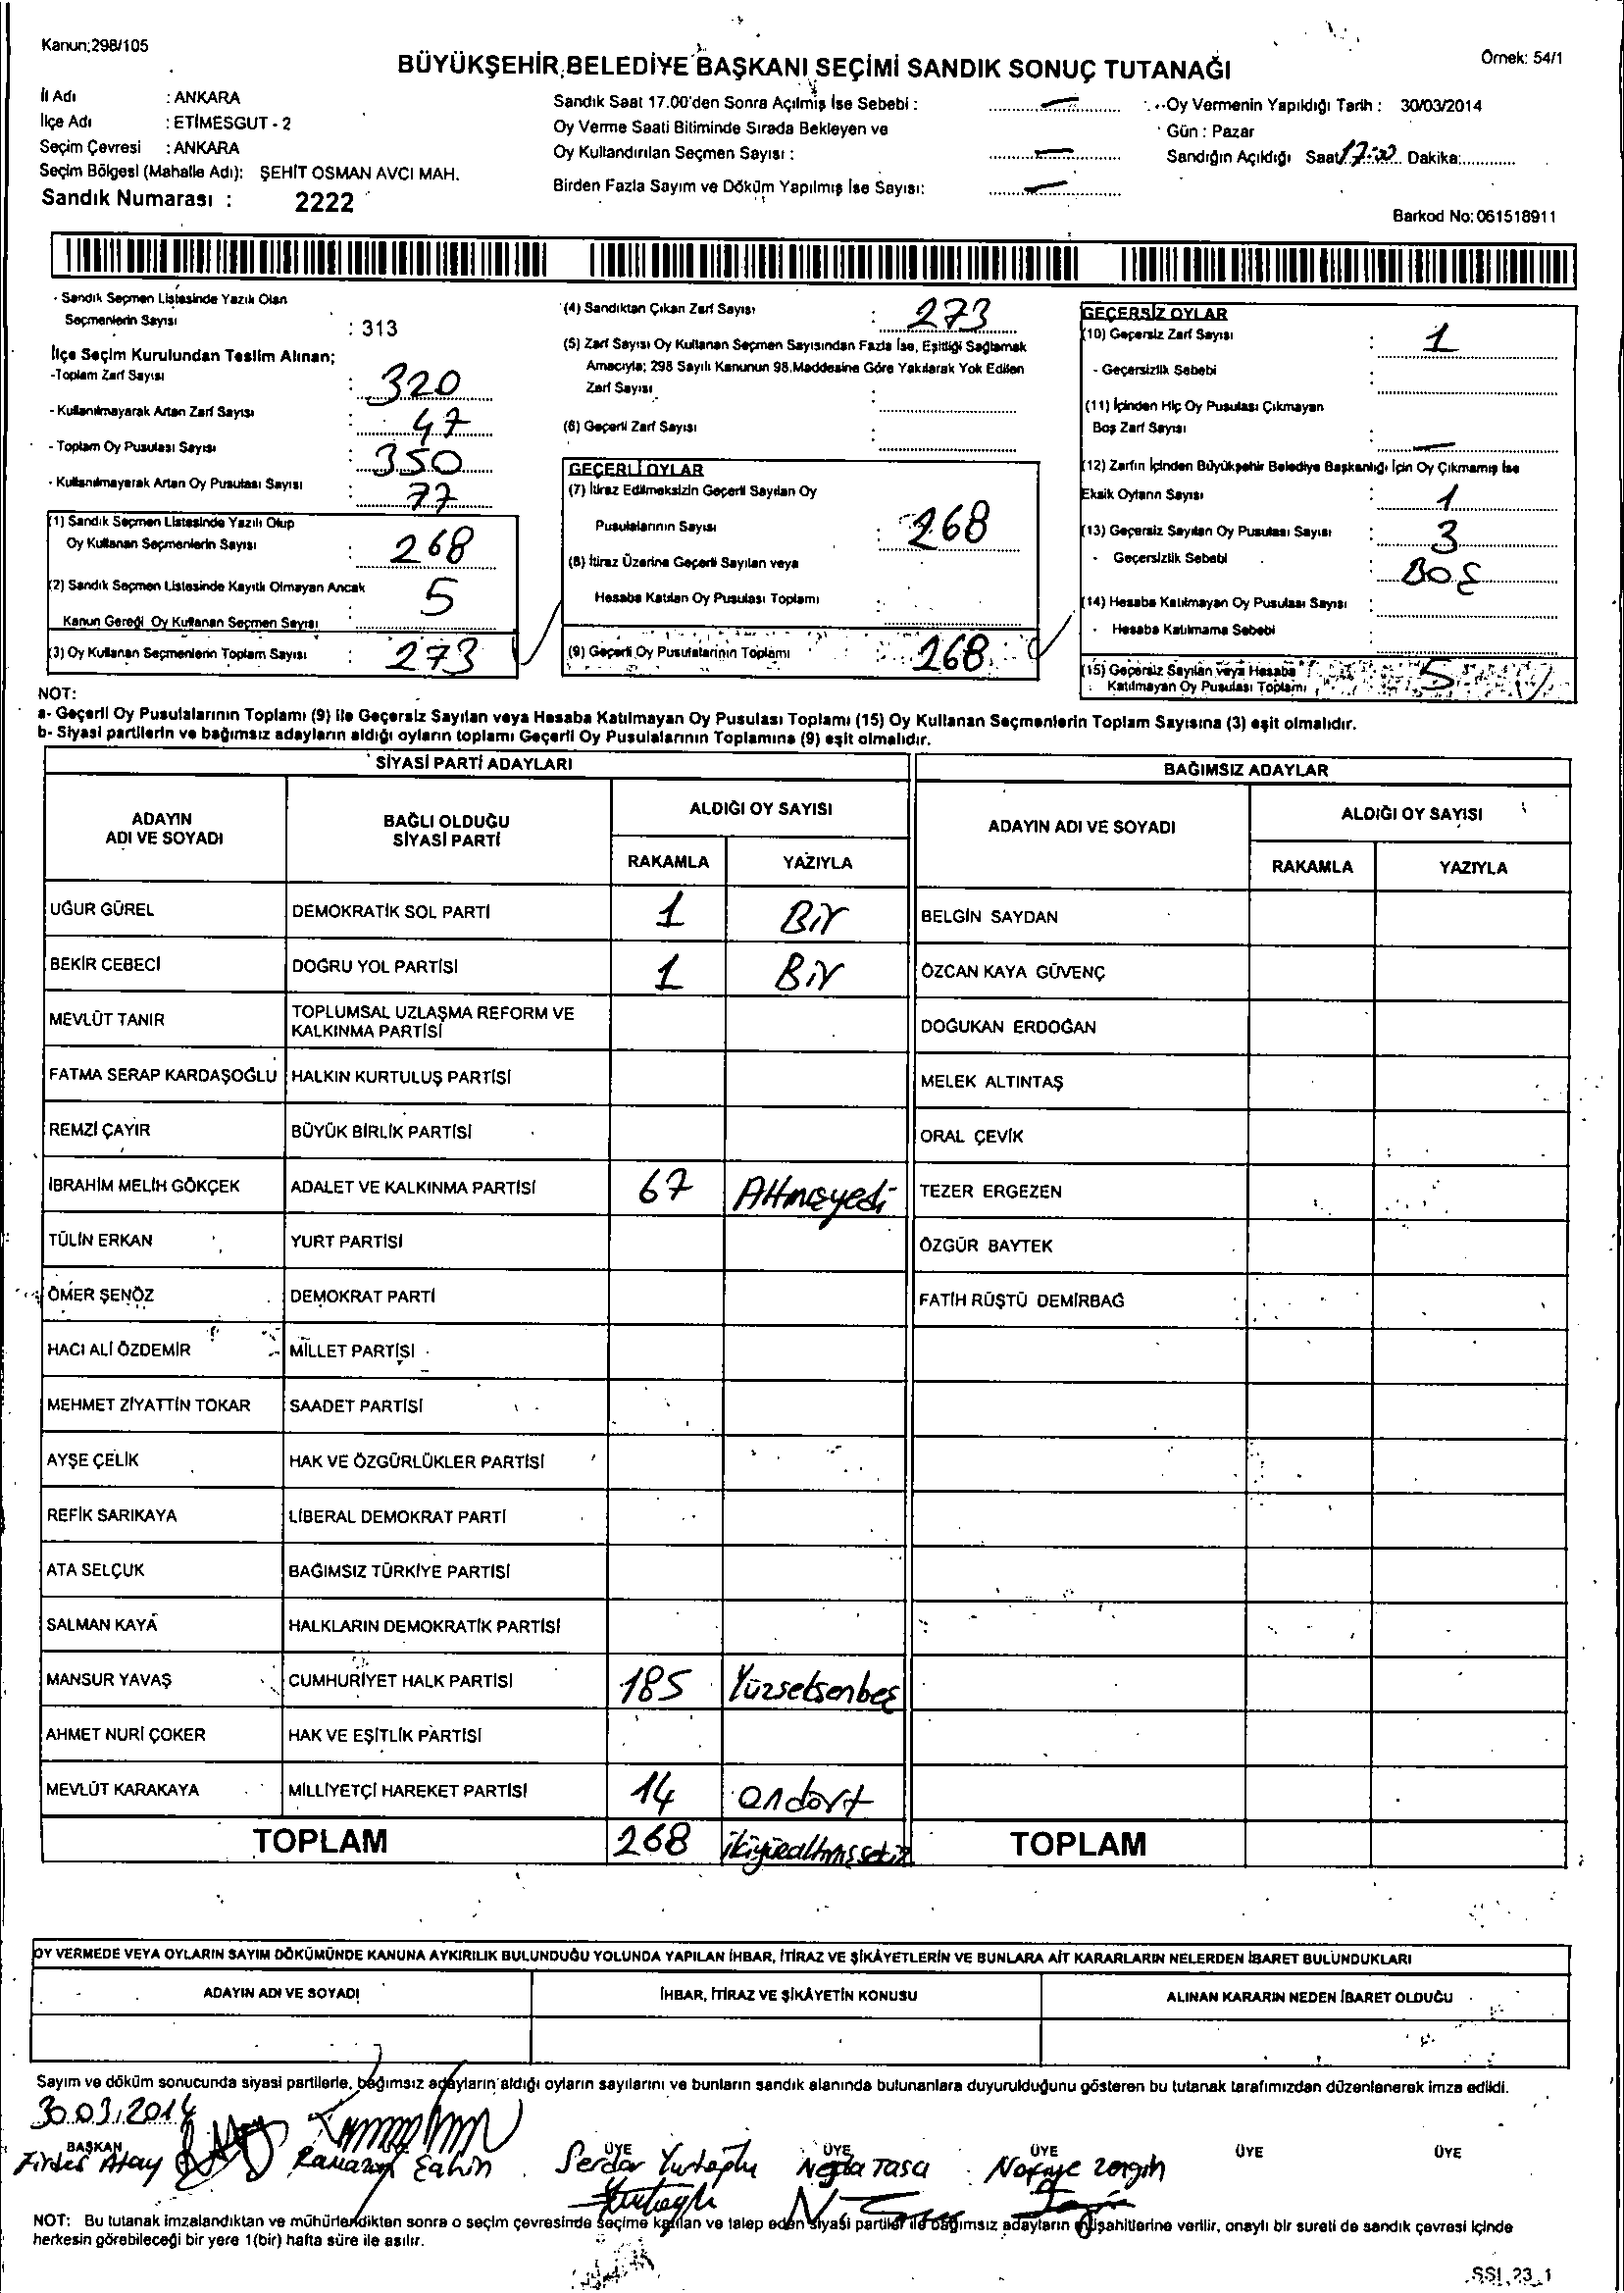 Kanun:298/105
Örnek: 54/1
BÜYÜKŞEHİR BELEDİYE BAŞKANI SEÇİMİ SANDIK SONUÇ TUTANAĞI
İl Adı : ANKARA
İlçe Adı : ETİMESGUT - 2
Seçim Çevresi : ANKARA
Seçim Bölgesi (Mahalle Adı): ŞEHİT OSMAN AVCI MAH.
Sandık Numarası : 2222
Sandık Saat 17.00'den Sonra Açılmış İse Sebebi :
Oy Verme Saati Bitiminde Sırada Bekleyen ve
Oy Kullandırılan Seçmen Sayısı :
Birden Fazla Sayım ve Döküm Yapılmış İse Sayısı:
Oy Vermenin Yapıldığı Tarih : 30/03/2014
Gün : Pazar
Sandığın Açıldığı Saat 17:00 Dakika:
Barkod No: 061518911
- Sandık Seçmen Listesinde Yazılı Olan
Seçmenlerin Sayısı : 313
İlçe Seçim Kurulundan Teslim Alınan;
-Toplam Zarf Sayısı : 320
- Kullanılmayarak Artan Zarf Sayısı : 47
- Toplam Oy Pusulası Sayısı : 350
- Kullanılmayarak Artan Oy Pusulası Sayısı : 77
(1) Sandık Seçmen Listesinde Yazılı Olup
Oy Kullanan Seçmenlerin Sayısı : 268
(2) Sandık Seçmen Listesinde Kayıtlı Olmayan Ancak
Kanun Gereği Oy Kullanan Seçmen Sayısı : 5
(3) Oy Kullanan Seçmenlerin Toplam Sayısı : 273
(4) Sandıktan Çıkan Zarf Sayısı : 273
(5) Zarf Sayısı Oy Kullanan Seçmen Sayısından Fazla İse, Eşitliği Sağlamak
Amacıyla; 298 Sayılı Kanunun 98.Maddesine Göre Yakılarak Yok Edilen
Zarf Sayısı :
(6) Geçerli Zarf Sayısı :
GEÇERLİ OYLAR
(7) İtiraz Edilmeksizin Geçerli Sayılan Oy
Pusulalarının Sayısı : 268
(8) İtiraz Üzerine Geçerli Sayılan veya
Hesaba Katılan Oy Pusulası Toplamı :
(9) Geçerli Oy Pusulalarının Toplamı : 268
GEÇERSİZ OYLAR
(10) Geçersiz Zarf Sayısı : 1
- Geçersizlik Sebebi :
(11) İçinden Hiç Oy Pusulası Çıkmayan
Boş Zarf Sayısı :
(12) Zarfın İçinden Büyükşehir Belediye Başkanlığı İçin Oy Çıkmamış İse
Eksik Oyların Sayısı : 1
(13) Geçersiz Sayılan Oy Pusulası Sayısı : 3
- Geçersizlik Sebebi : BOŞ
(14) Hesaba Katılmayan Oy Pusulası Sayısı :
- Hesaba Katılmama Sebebi :
(15) Geçersiz Sayılan veya Hesaba
Katılmayan Oy Pusulası Toplamı 5
NOT:
a- Geçerli Oy Pusulalarının Toplamı (9) ile Geçersiz Sayılan veya Hesaba Katılmayan Oy Pusulası Toplamı (15) Oy Kullanan Seçmenlerin Toplam Sayısına (3) eşit olmalıdır.
b- Siyasi partilerin ve bağımsız adayların aldığı oyların toplamı Geçerli Oy Pusulalarının Toplamına (9) eşit olmalıdır.
SİYASİ PARTİ ADAYLARI
BAĞIMSIZ ADAYLAR
ADAYIN
ADI VE SOYADI
BAĞLI OLDUĞU
SİYASİ PARTİ
ALDIĞI OY SAYISI
RAKAMLA YAZIYLA
ADAYIN ADI VE SOYADI
ALDIĞI OY SAYISI
RAKAMLA YAZIYLA
UĞUR GÜREL DEMOKRATİK SOL PARTİ 1 Bir BELGİN SAYDAN
BEKİR CEBECİ DOĞRU YOL PARTİSİ 1 Bir ÖZCAN KAYA GÜVENÇ
MEVLÜT TANIR TOPLUMSAL UZLAŞMA REFORM VE
KALKINMA PARTİSİ DOĞUKAN ERDOĞAN
FATMA SERAP KARDAŞOĞLU HALKIN KURTULUŞ PARTİSİ MELEK ALTINTAŞ
REMZİ ÇAYIR BÜYÜK BİRLİK PARTİSİ ORAL ÇEVİK
İBRAHİM MELİH GÖKÇEK ADALET VE KALKINMA PARTİSİ 67 Altmışyedi TEZER ERGEZEN
TÜLİN ERKAN YURT PARTİSİ ÖZGÜR BAYTEK
ÖMER ŞENÖZ DEMOKRAT PARTİ FATİH RÜŞTÜ DEMİRBAĞ
HACI ALİ ÖZDEMİR MİLLET PARTİSİ
MEHMET ZİYATTİN TOKAR SAADET PARTİSİ
AYŞE ÇELİK HAK VE ÖZGÜRLÜKLER PARTİSİ
REFİK SARIKAYA LİBERAL DEMOKRAT PARTİ
ATA SELÇUK BAĞIMSIZ TÜRKİYE PARTİSİ
SALMAN KAYA HALKLARIN DEMOKRATİK PARTİSİ
MANSUR YAVAŞ CUMHURİYET HALK PARTİSİ 185 Yüzseksenbeş
AHMET NURİ ÇOKER HAK VE EŞİTLİK PARTİSİ
MEVLÜT KARAKAYA MİLLİYETÇİ HAREKET PARTİSİ 14 ondört
TOPLAM 268 ikiyüzaltmışsekiz TOPLAM
OY VERMEDE VEYA OYLARIN SAYIM DÖKÜMÜNDE KANUNA AYKIRILIK BULUNDUĞU YOLUNDA YAPILAN İHBAR, İTİRAZ VE ŞİKÂYETLERİN VE BUNLARA AİT KARARLARIN NELERDEN İBARET BULUNDUKLARI
ADAYIN ADI VE SOYADI İHBAR, İTİRAZ VE ŞİKÂYETİN KONUSU ALINAN KARARIN NEDEN İBARET OLDUĞU
Sayım ve döküm sonucunda siyasi partilerle, bağımsız adayların aldığı oyların sayılarını ve bunların sandık alanında bulunanlara duyurulduğunu gösteren bu tutanak tarafımızdan düzenlenerek imza edildi.
30.03.2014
BAŞKAN ÜYE ÜYE ÜYE ÜYE ÜYE
Atay Ramazan Şahin Serdar Yurtoğlu Negda Tasa
NOT: Bu tutanak imzalandıktan ve mühürlendikten sonra o seçim çevresinde seçime katılan ve talep eden siyasi partiler ile bağımsız adayların müşahitlerine verilir, onaylı bir sureti de sandık çevresi içinde
herkesin görebileceği bir yere 1(bir) hafta süre ile asılır.
SSI_23_1